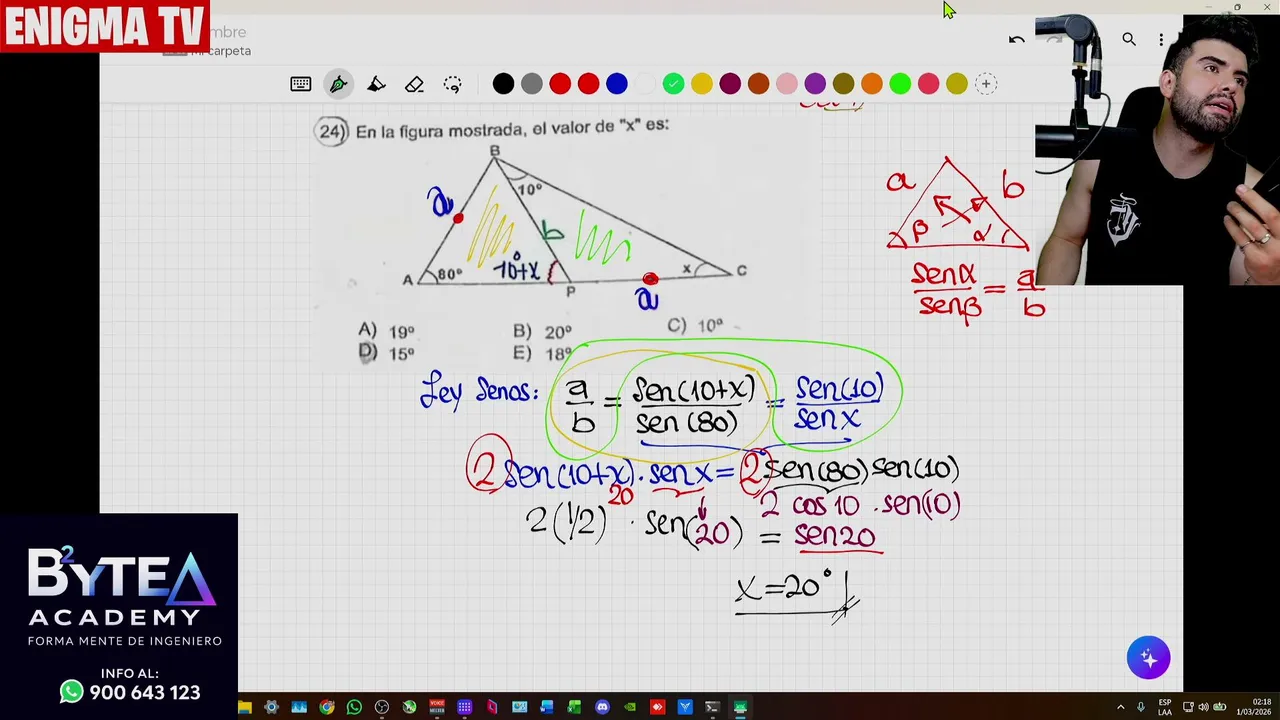 ENIGMA TV
mbre
Mi carpeta
24) En la figura mostrada, el valor de "x" es:
B
10°
a
b
A
80°
10°+x
P
x
C
a
A) 19°
B) 20°
C) 10°
D) 15°
E) 18°
a
b
β
α
senα
senβ
=
a
b
Ley Senos: a/b = sen(10+x)/sen(80) = sen(10)/sen x
2 sen(10+x) . sen x = 2 sen(80) sen(10)
20
2 cos 10 . sen(10)
2(1/2) . sen(20) = sen20
x=20°
B²YTE
ACADEMY
FORMA MENTE DE INGENIERO
INFO AL:
900 643 123
ESP
LAA
02:18
1/03/2026